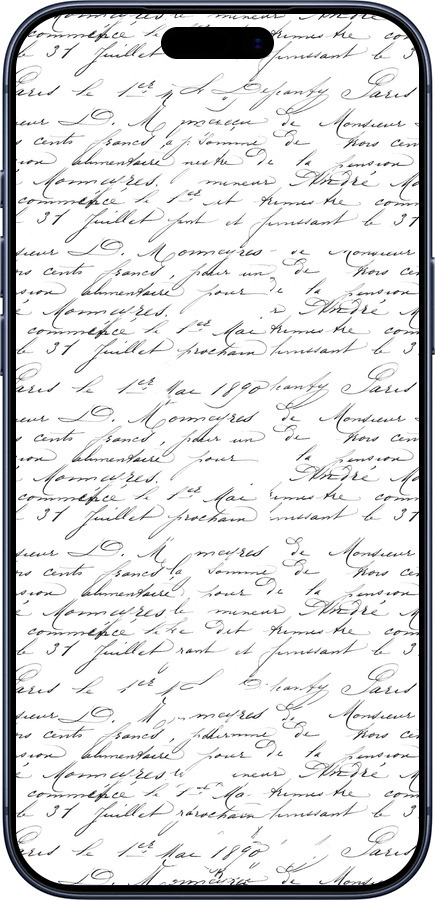 commencé le mineur trimestre co
le 31 Juillet finissant le 3
Paris le 1er Dépanfy Paris
sieur D. M de Monsieur
s cents francs, somme de trois cen
sion alimentaire de la pension
e Monmeyres. mineur André Mo
commencé le 1er et trimestre co
le 31 Juillet et finissant le 31
sieur D. Monmeyres de Monsieur
rs cents francs, pour un de trois cen
sion alimentaire pour de la pension
e Monmeyres. André Mo
commencé le 1er Mai trimestre co
le 31 Juillet prochain finissant le 3
Paris le 1er Mai 1890 hanfy Paris
sieur D. Monmeyres de Monsieur
s cents francs, pour un de trois cen
sion alimentaire pour la pension
e Monmeyres. André Mo
commencé le 1er Mai trimestre co
le 31 Juillet prochain finissant le 31
sieur D. M meyres de Monsieur
rs cents francs la somme de trois cen
sion alimentaire pour de la pension
e Monmeyres le mineur André Mo
commencé le dit trimestre co
le 31 Juillet et finissant le 3
Paris le 1er épanfy Paris
sieur D. M meyres de Monsieur
rs cents francs, de trois cen
sion alimentaire pour de la pension
e Monmeyres ineur André Mo
commencé le 1er Ma trimestre co
le 31 Juillet prochain finissant le 31
Paris le 1er Mai 1890 Paris
sieur D. M de Monsieur